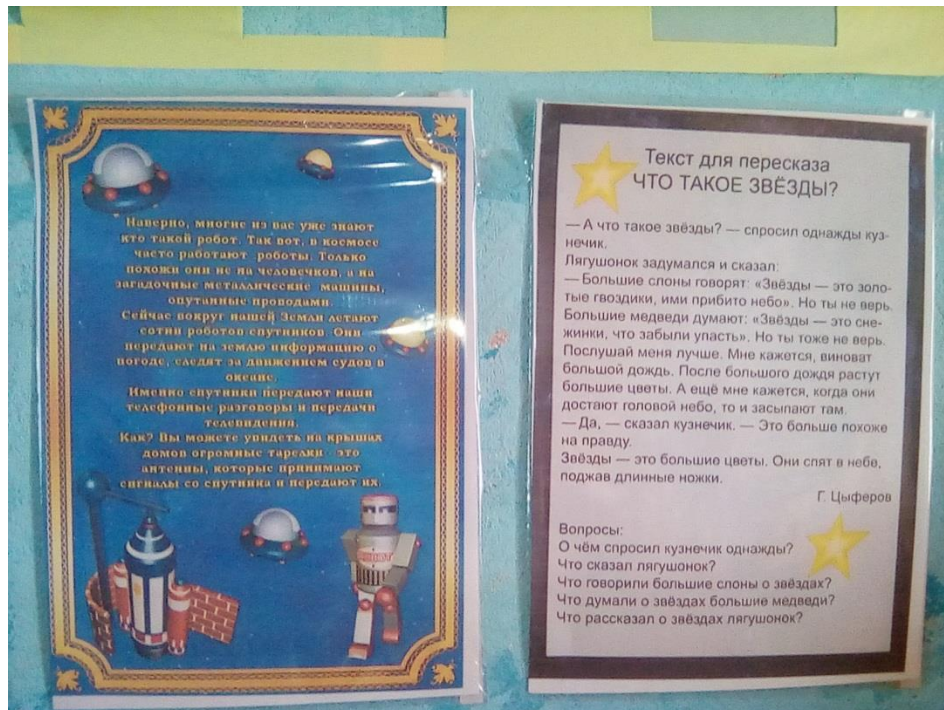 Наверно, многие из вас уже знают
кто такой робот. Так вот, в космосе
часто работают роботы. Только
похожи они не на человечков, а на
загадочные металлические машины,
опутанные проводами.
Сейчас вокруг нашей Земли летают
сотни роботов спутников. Они
передают на землю информацию о
погоде, следят за движением судов в
океане.
Именно спутники передают наши
телефонные разговоры и передачи
телевидения.
Как? Вы можете увидеть на крышах
домов огромные тарелки - это
антенны, которые принимают
сигналы со спутника и передают их.
ROBOT
Текст для пересказа
ЧТО ТАКОЕ ЗВЁЗДЫ?
— А что такое звёзды? — спросил однажды куз-
нечик.
Лягушонок задумался и сказал:
— Большие слоны говорят: «Звёзды — это золо-
тые гвоздики, ими прибито небо». Но ты не верь.
Большие медведи думают: «Звёзды — это сне-
жинки, что забыли упасть». Но ты тоже не верь.
Послушай меня лучше. Мне кажется, виноват
большой дождь. После большого дождя растут
большие цветы. А ещё мне кажется, когда они
достают головой небо, то и засыпают там.
— Да, — сказал кузнечик. — Это больше похоже
на правду.
Звёзды — это большие цветы. Они спят в небе,
поджав длинные ножки.
Г. Цыферов
Вопросы:
О чём спросил кузнечик однажды?
Что сказал лягушонок?
Что говорили большие слоны о звёздах?
Что думали о звёздах большие медведи?
Что рассказал о звёздах лягушонок?